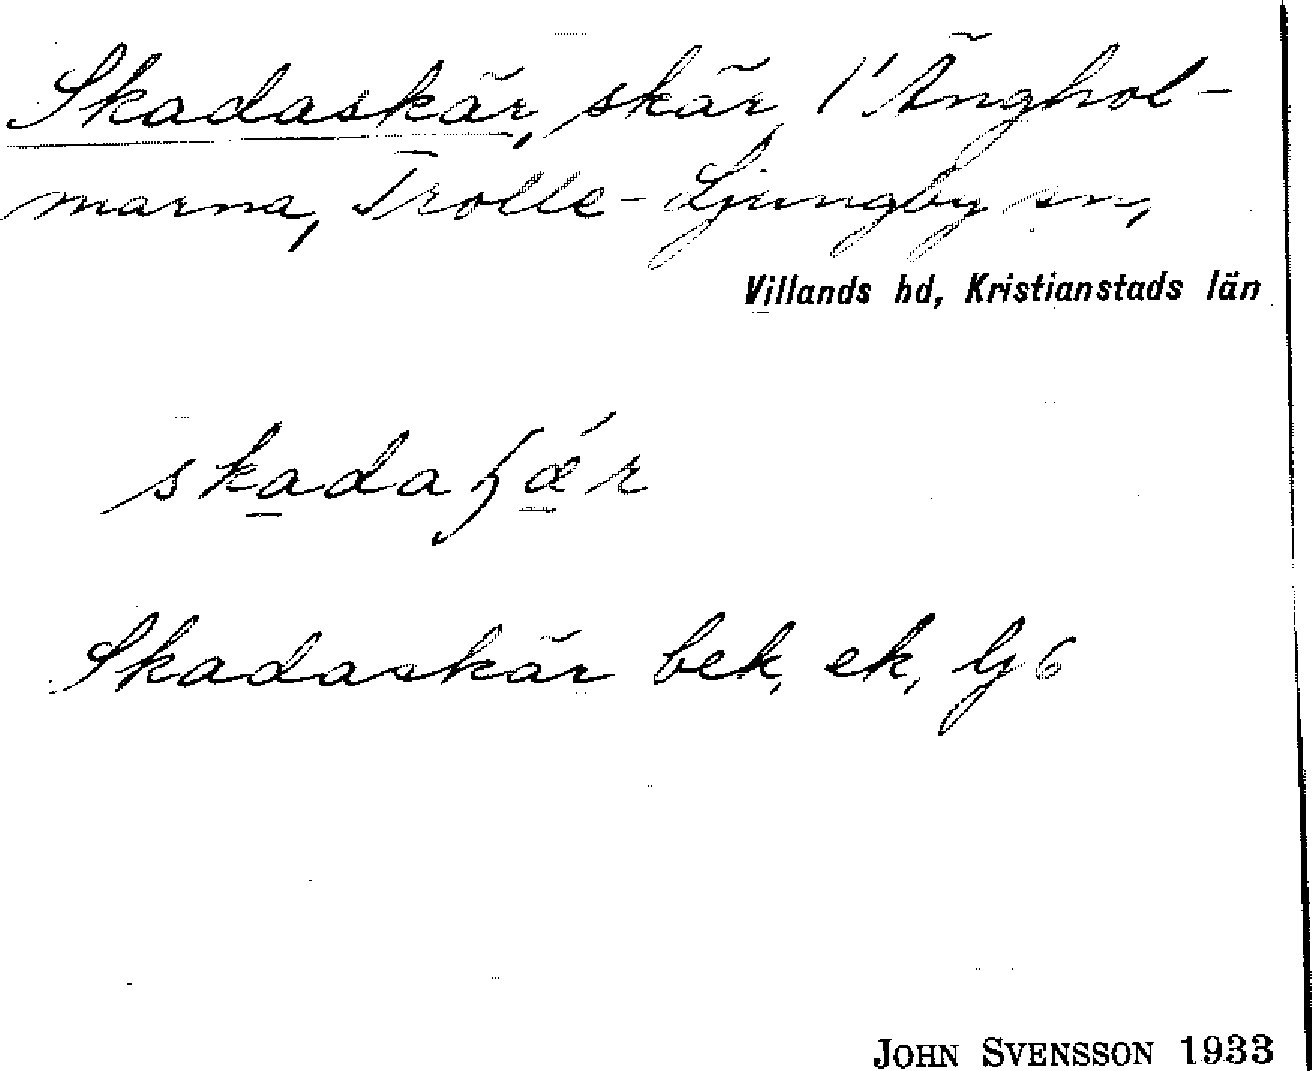 Skadaskär, skär i Änghol-
marna, Trolle-Ljungby sn,
Villands hd, Kristianstads län
skadaʃǽr
Skadaskär bek, ek, lj 6
JOHN SVENSSON 1933